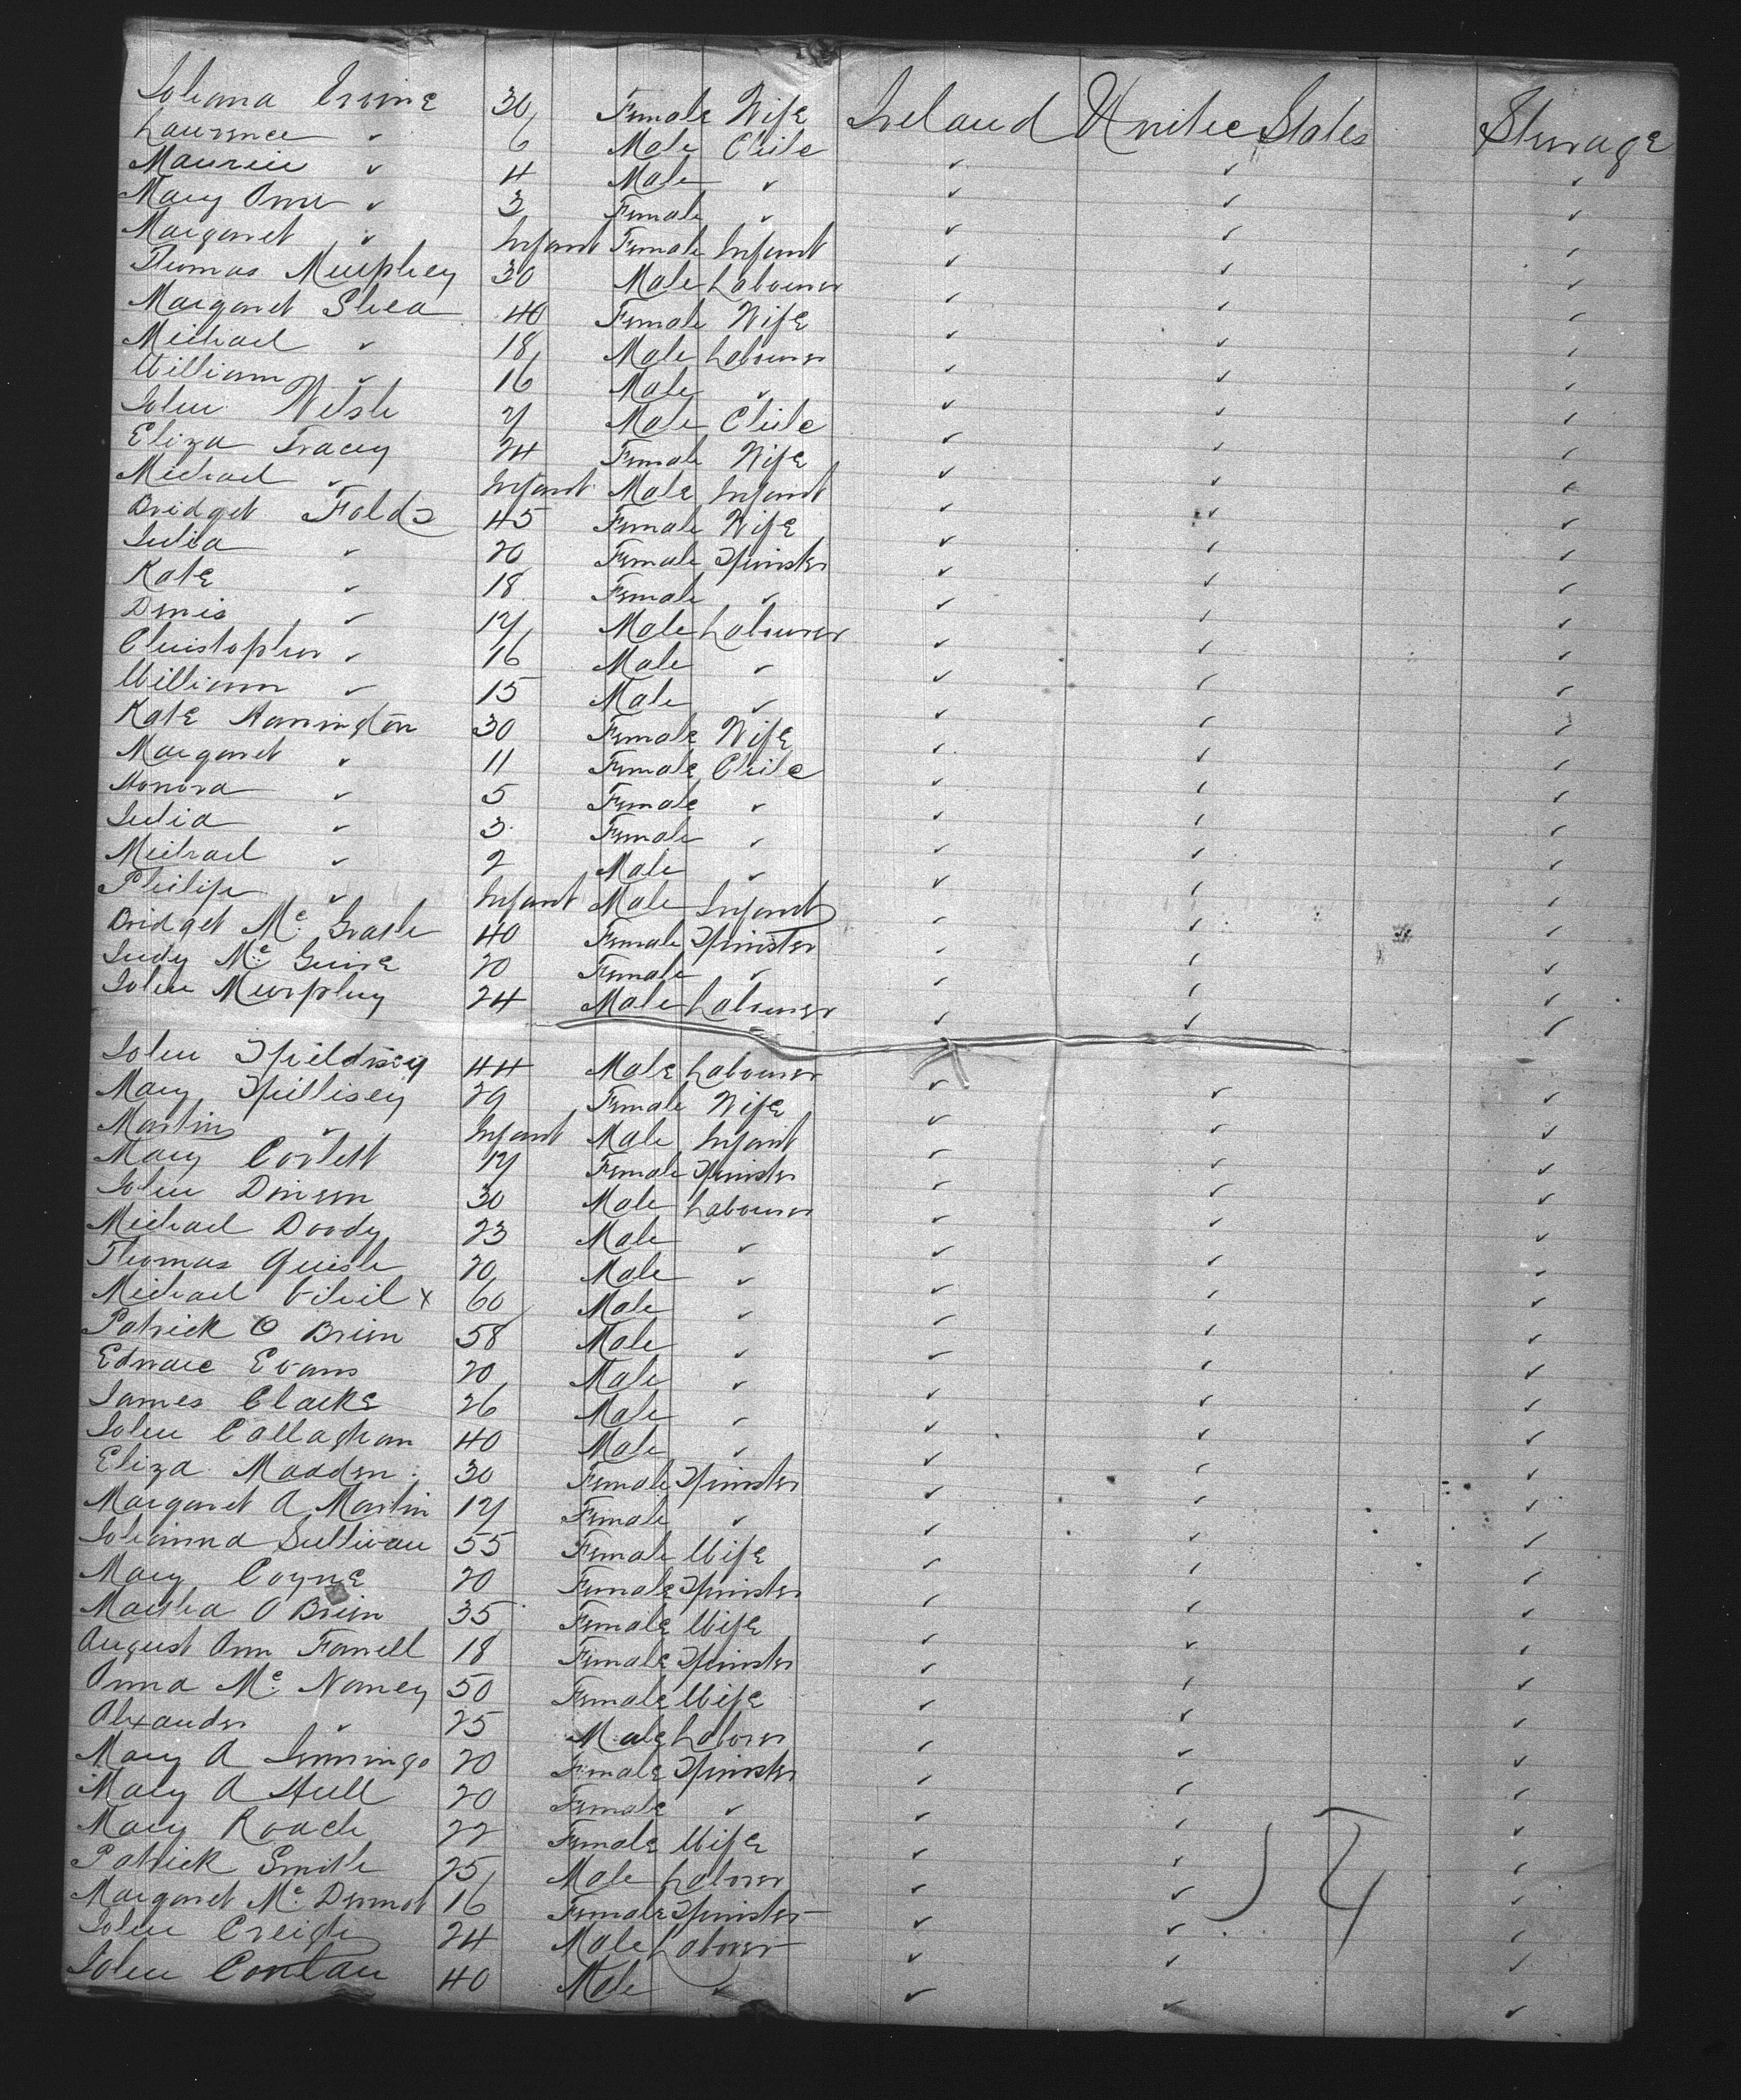 Johana Irvine 30 Female Wife Ireland United States Steerage
Laurence " 6 Male Child " " "
Maurice " 4 Male " " " "
Mary Ann " 3 Female " " " "
Margaret " Infant Female Infant " " "
Thomas Murphey 30 Male Labourer " " "
Margaret Shea 40 Female Wife " " "
Michael " 18 Male Labourer " " "
William " 16 Male " " " "
John Welsh 7 Male Child " " "
Eliza Tracey 24 Female Wife " " "
Michael " Infant Male Infant " " "
Bridget Folds 45 Female Wife " " "
Julia " 20 Female Spinster " " "
Kate " 18 Female " " " "
Denis " 17 Male Labourer " " "
Christopher " 16 Male " " " "
William " 15 Male " " " "
Kate Harrington 30 Female Wife " " "
Margaret " 11 Female Child " " "
Honora " 5 Female " " " "
Julia " 3 Female " " " "
Michael " 2 Male " " " "
Philip " Infant Male Infant " " "
Bridget Mc Grath 40 Female Spinster " " "
Judy Mc Guire 20 Female " " " "
John Murphy 24 Male Labourer " " "
John 44 Male Labourer " " "
Mary Spillisey 29 Female Wife " " "
Martin " Infant Male Infant " " "
Mary Corlett 17 Female Spinster " " "
John Dineen 30 Male Labourer " " "
Michael Doody 23 Male " " " "
Thomas Quish 20 Male " " " "
Michael x 60 Male " " " "
Patrick O Brien 58 Male " " " "
Edward Evans 20 Male " " " "
James Clarke 26 Male " " " "
John Callaghan 40 Male " " " "
Eliza Madden 30 Female Spinster " " "
Margaret A Martin 17 Female " " " "
Johanna Sullivan 55 Female Wife " " "
Mary Coyne 20 Female Spinster " " "
Martha O Brien 35 Female Wife " " "
August Ann Farrell 18 Female Spinster " " "
Anna Mc Namey 50 Female Wife " " "
Alexander " 25 Male Laborer " " "
Mary A Jennings 20 Female Spinster " " "
Mary A Hull 20 Female " " " "
Mary Roach 22 Female Wife " " "
Patrick Smith 25 Male Laborer " " "
Margaret Mc Dermot 16 Female Spinster " " "
John Creigh 24 Male Laborer " " "
John Conlan 40 Male " " " "